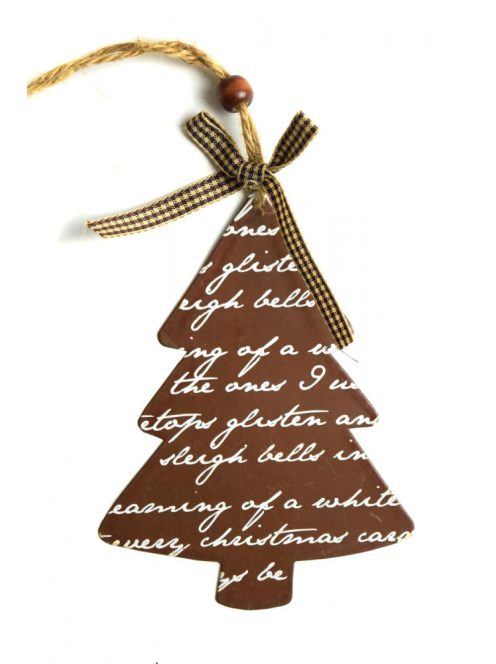 ones
s glisten
eigh bells
ing of a w
the ones I us
etops glisten an
sleigh bells in
eaming of a white
every christmas card
ys be